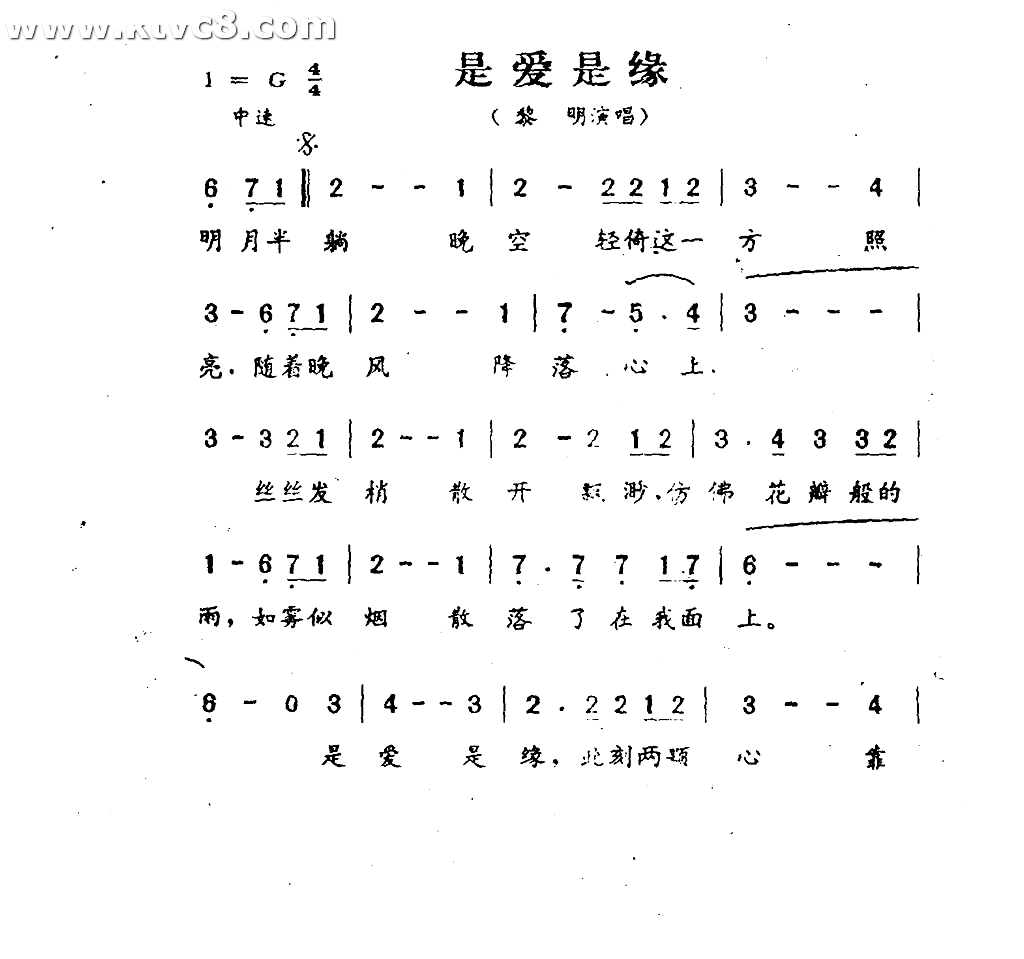 www.ktvc8.com
是爱是缘
1 = G 4/4
中速
（黎 明演唱）
6 7 1 ‖ 2 - - 1 | 2 - 2 2 1 2 | 3 - - 4 |
明月半 躺 晚 空 轻倚这一 方 照
3 - 6 7 1 | 2 - - 1 | 7 - 5 . 4 | 3 - - - |
亮. 随着晚 风 降 落 心 上.
3 - 3 2 1 | 2 - - 1 | 2 - 2 1 2 | 3 . 4 3 3 2 |
丝丝发 梢 散 开 渺、仿 佛 花 瓣 般的
1 - 6 7 1 | 2 - - 1 | 7 . 7 7 1 7 | 6 - - - |
雨，如雾似 烟 散 落 了 在 我面 上。
6 - 0 3 | 4 - - 3 | 2 . 2 2 1 2 | 3 - - 4 |
是 爱 是 缘，此刻两 心 靠